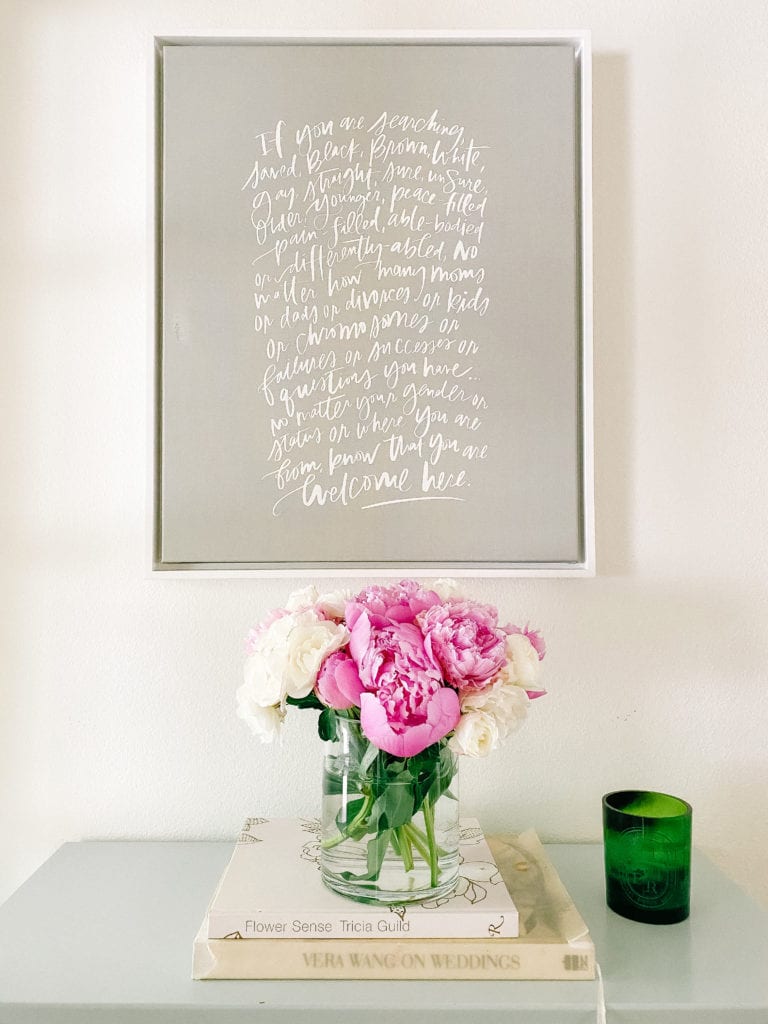 If you are searching,
saved, Black, Brown, White,
gay, straight, sure, unsure,
older, younger, peace-filled
pain-filled, able-bodied
or differently-abled, no
matter how many moms
or dads or divorces or kids
or chromosomes or
failures or successes or
questions you have...
no matter your gender or
status or where you are
from, know that you are
welcome here.
Flower Sense Tricia Guild
VERA WANG ON WEDDINGS